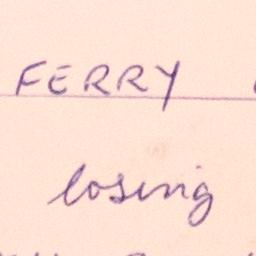 FERRY
losing